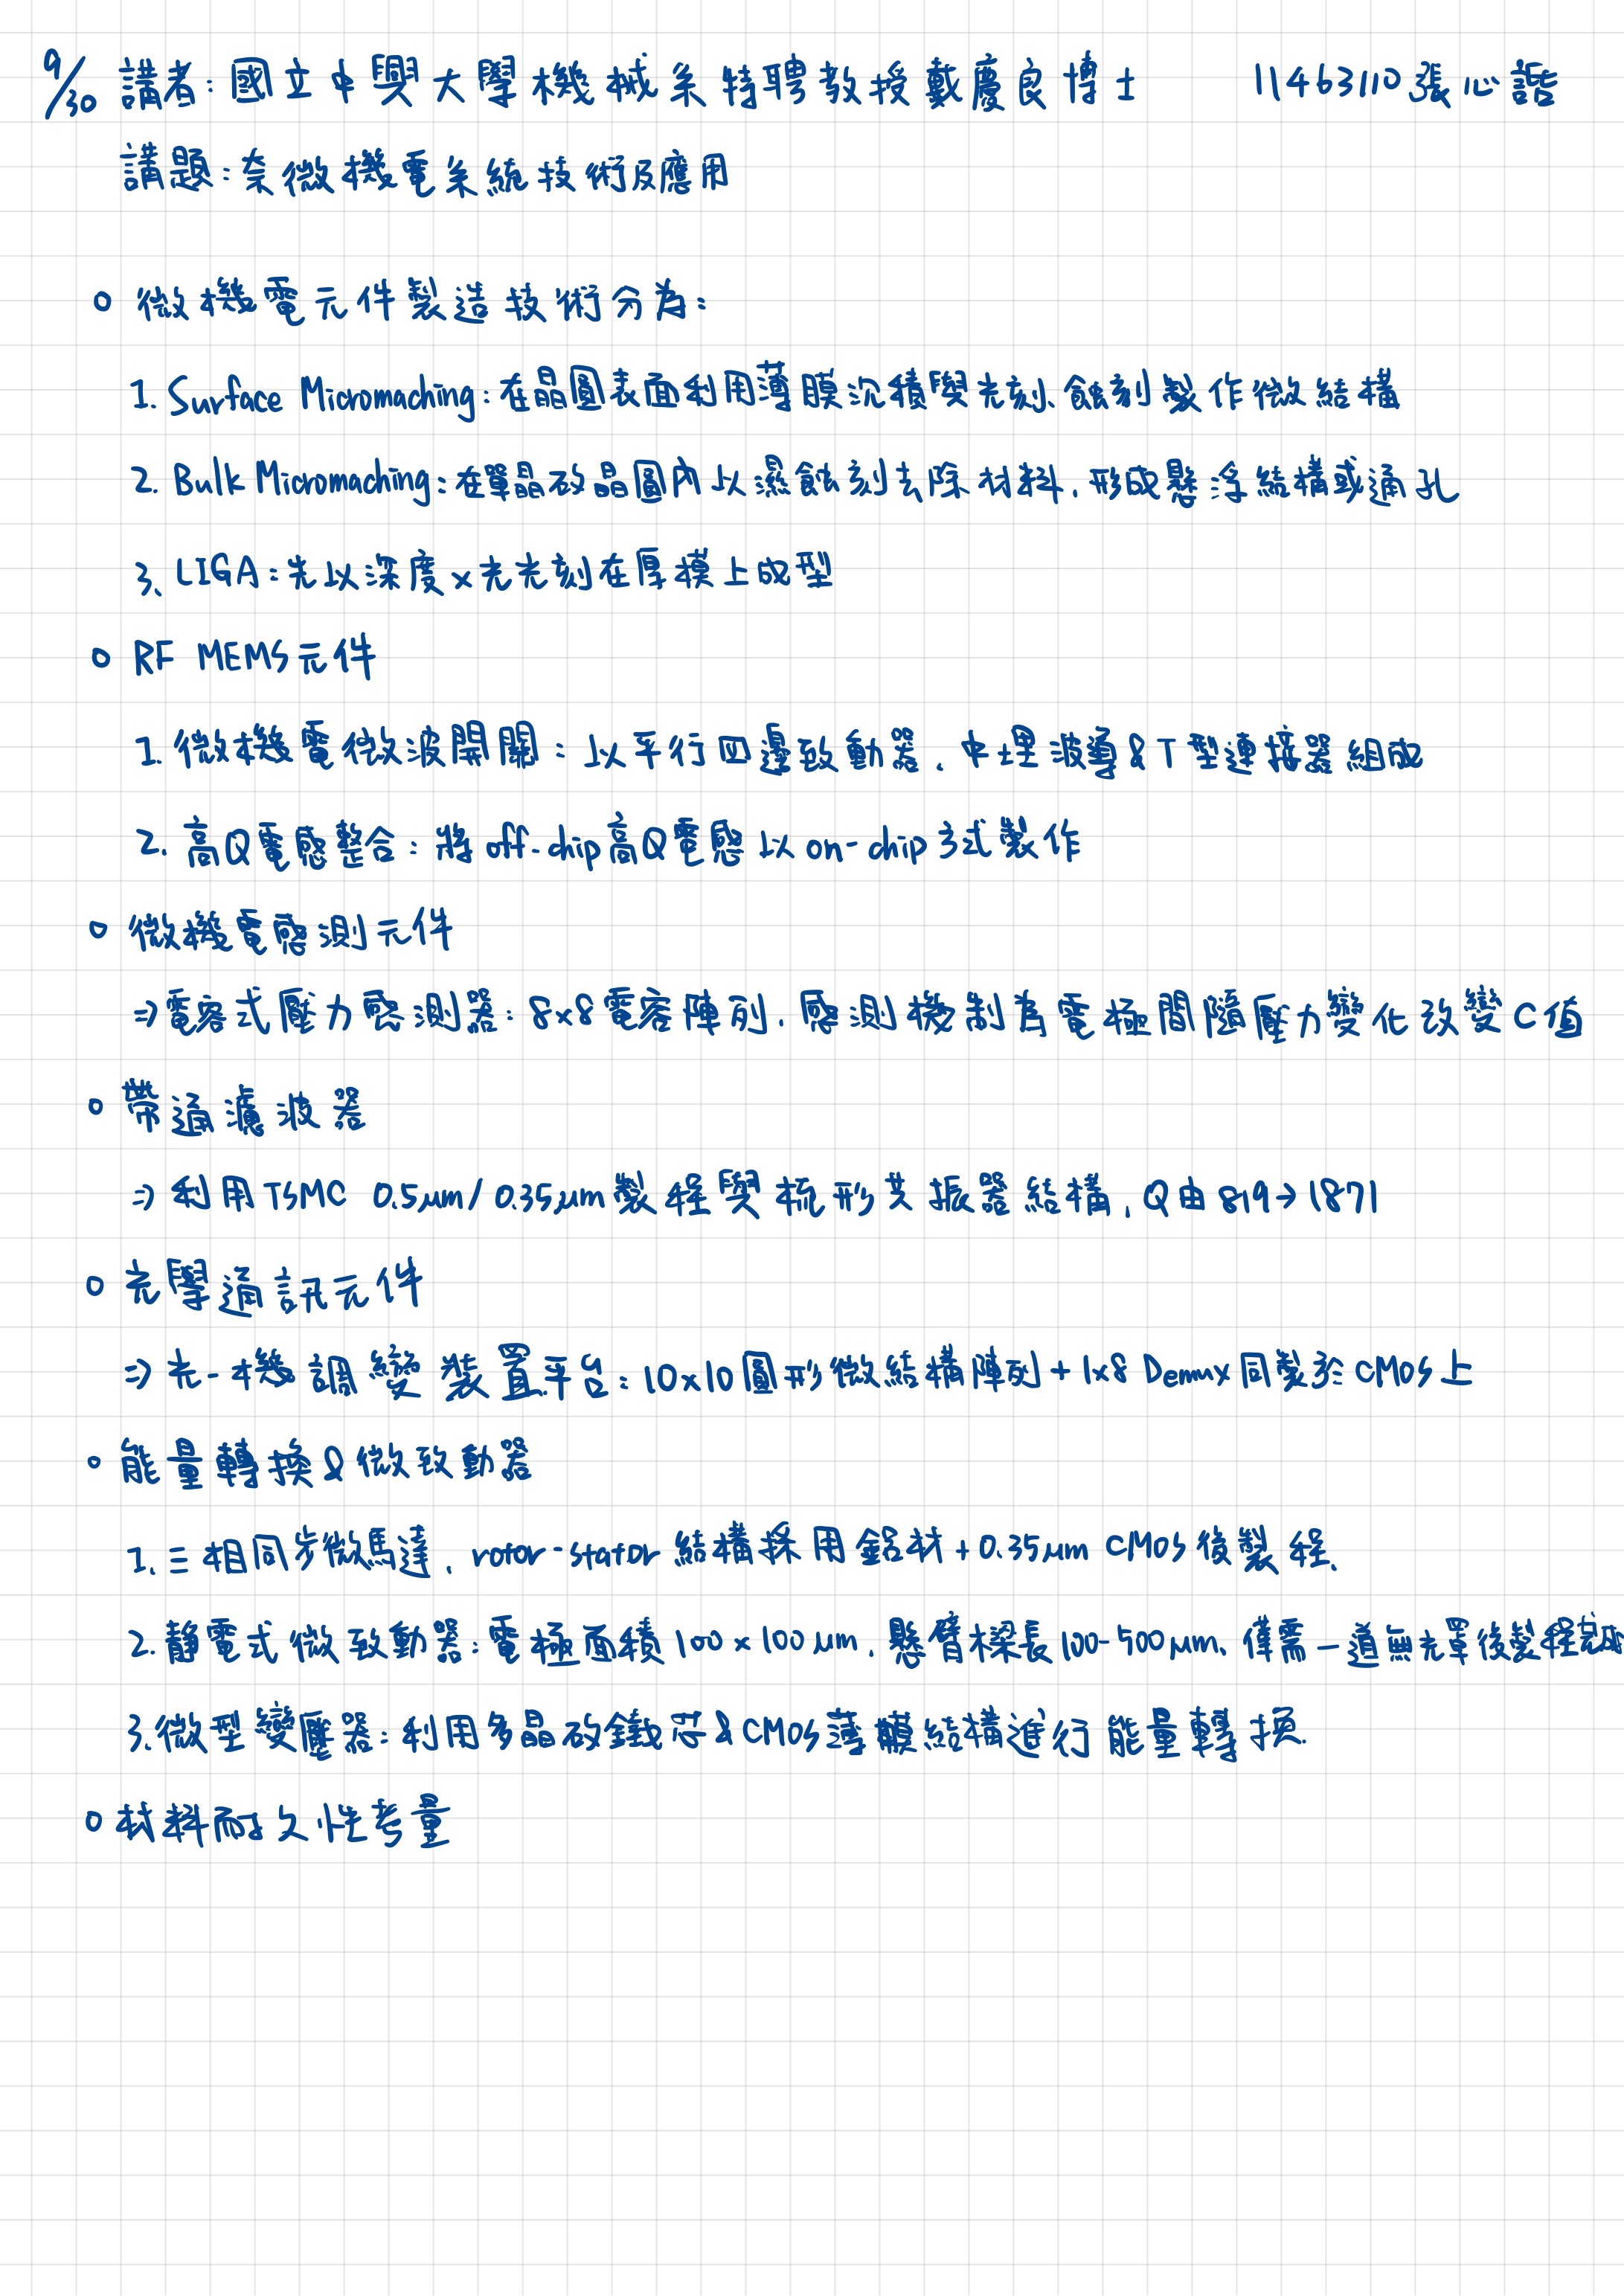 9/30 講者:國立中興大學機械系特聘教授戴慶良博士 11463110張心諧
講題:奈微機電系統技術及應用
○ 微機電元件製造技術分為:
1. Surface Micromaching:在晶圓表面利用薄膜沉積與光刻、蝕刻製作微結構
2. Bulk Micromaching:在單晶矽晶圓內以濕蝕刻去除材料,形成懸浮結構或通孔
3、LIGA:先以深度x光光刻在厚摸上成型
○ RF MEMS元件
1. 微機電微波開關:以平行四邊致動器、中埋波導&T型連接器組成
2. 高Q電感整合:將off-chip高Q電感以on-chip方式製作
○ 微機電感測元件
⇒電容式壓力感測器:8x8電容陣列,感測機制為電極間隨壓力變化改變C值
○ 帶通濾波器
⇒ 利用TSMC 0.5μm/0.35μm製程與梳形共振器結構,Q由819→1871
○ 光學通訊元件
⇒ 光-機調變裝置平台:10x10圓形微結構陣列+1x8 Demux同製於CMOS上
○ 能量轉換&微致動器
1. 三相同步微馬達,rotor-stator結構採用鋁材+0.35μm CMOS後製程.
2. 靜電式微致動器:電極面積100x100μm,懸臂樑長100-500μm、僅需一道無光罩後製程完成
3.微型變壓器:利用多晶矽鐵芯&CMOS薄膜結構進行能量轉換.
○ 材料耐久性考量